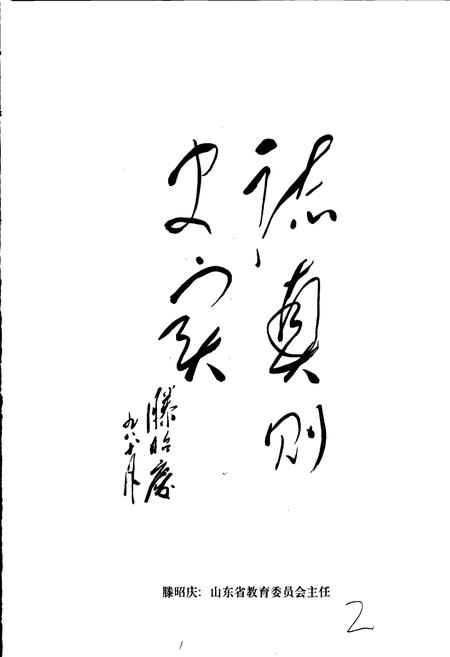 誌真则
史实
滕昭庆
九八.十月
滕昭庆：山东省教育委员会主任
2